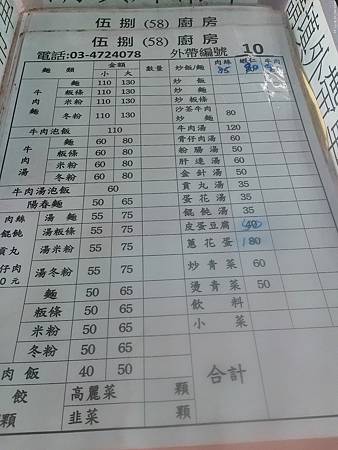 伍捌(58)廚房
伍捌(58)廚房
電話:03-4724078 外帶編號 10
麵 類 金額 小 大 數量 炒飯/麵 肉絲 蝦仁 牛肉
牛肉 麵 110 130 炒 飯
粄條 110 130 炒 麵
米粉 110 130 炒 粄條
冬粉 110 130 沙茶牛肉炒麵 80
牛肉泡飯 110 牛肉湯 120
牛肉湯 麵 60 80 骨仔肉湯 60
粄條 60 80 粉腸湯 50
米粉 60 80 肝連湯 50
冬粉 60 80 金針湯 50
牛肉湯泡飯 60 貢丸湯 35
陽春麵 50 65 蛋花湯 35
肉絲 湯 麵 55 75 餛飩湯 35
餛飩 湯粄條 55 75 皮蛋豆腐 40
貢丸 湯米粉 55 75 蔥花蛋 80
仔肉 湯冬粉 55 75 炒青菜 60
0元
麵 50 65 燙青菜 50
粄條 50 65 飲 料
米粉 50 65 小 菜
冬粉 50 65
肉飯 40 50 合計
餃 高麗菜 顆
顆 韭菜 顆